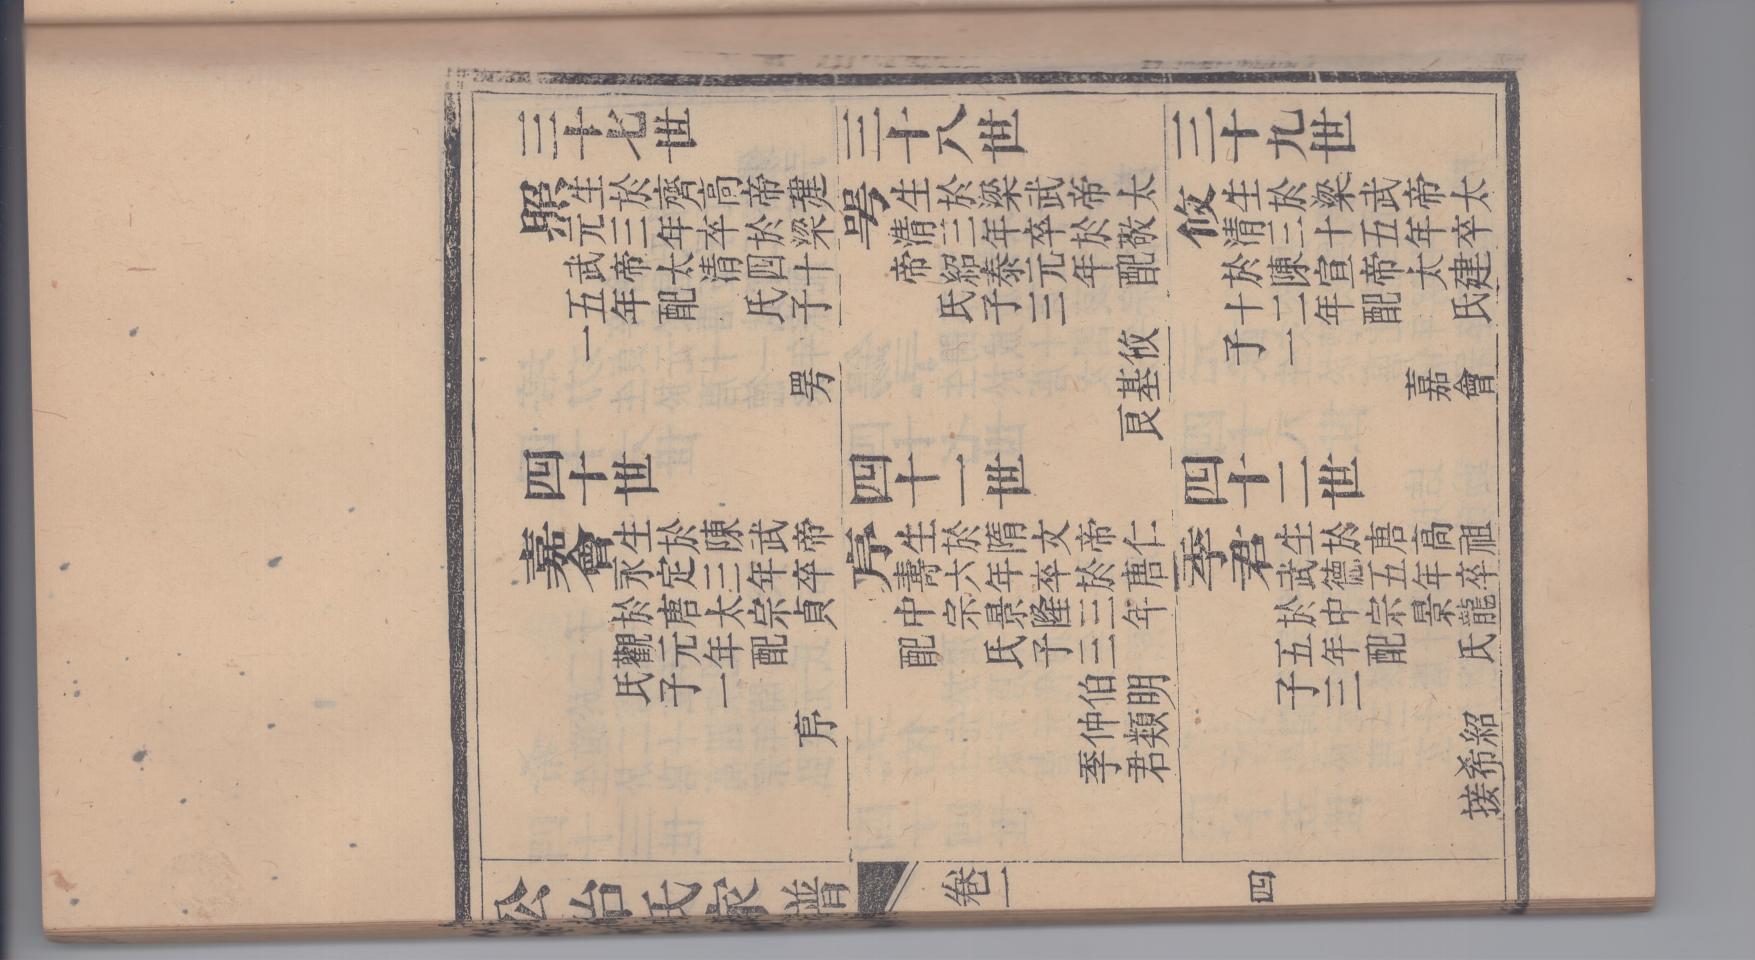 三十七世
照
生於齊高帝建
元三年卒於梁
武帝太清四十
五年配 氏子
一
咢
三十八世
咢
生於梁武帝太
清三年卒於敬
帝紹泰元年配
氏子三
攸
基
艮
三十九世
攸
生於梁武帝太
清三十五年卒
於陳宣帝太建
十二年配 氏
子一
嘉會
四十世
嘉會
生於陳武帝
永定三年卒
於唐太宗貞
觀元年配
氏子一
序
四十一世
序
生於隋文帝仁
壽六年卒於唐
中宗景隆三年
配 氏子三
伯明
仲類
季君
四十二世
季君
生於唐高祖
武德五年卒
於中宗景龍
五年配 氏
子三
紹
希
接
公冶氏家譜
卷一
四